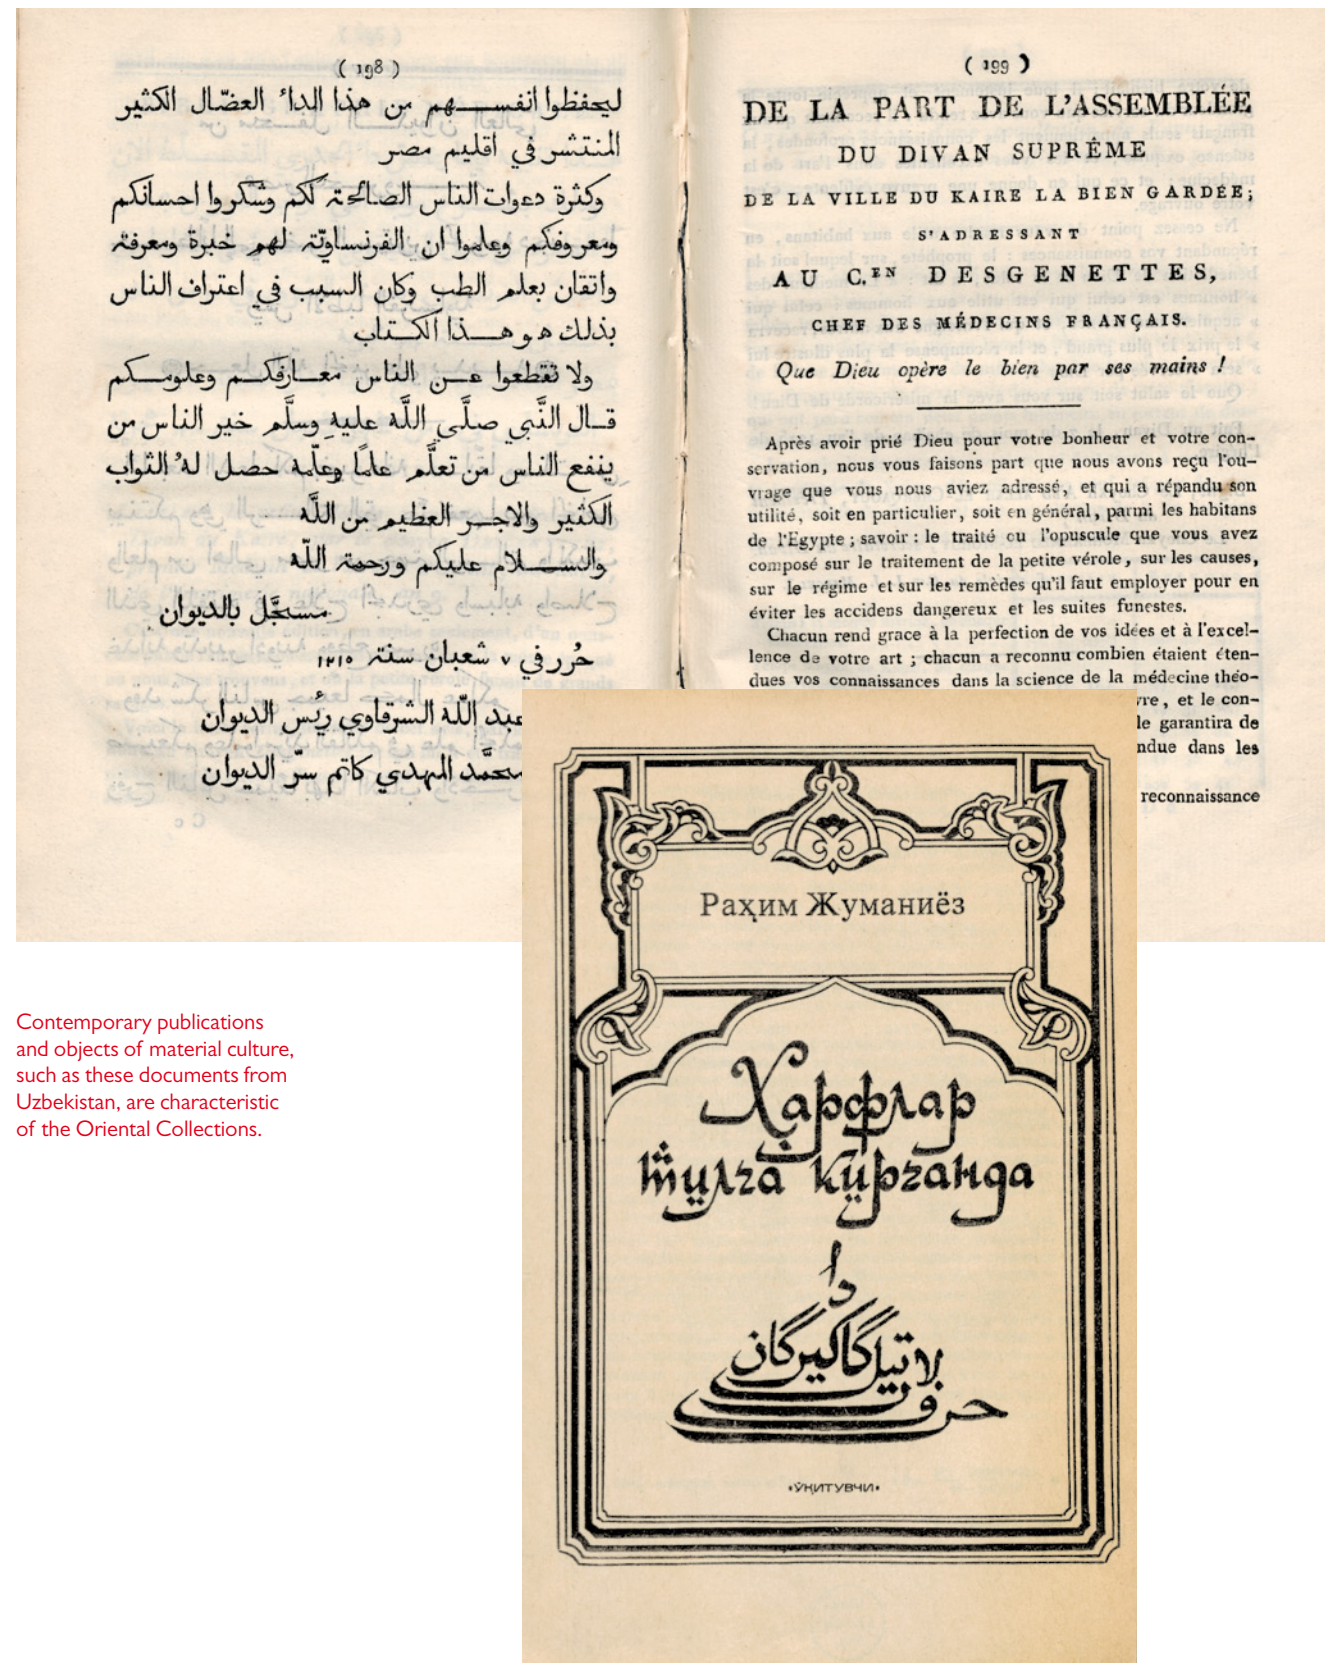 ( 198 )
ليحفظوا انفسهم من هذا الداء العضّال الكثير
المنتشر في اقليم مصر
وكثرة دعوات الناس الصالحة لكم وشكروا احسانكم
ومعروفكم وعلموا ان الفرنساويّة لهم خبرة ومعرفة
واتقان بعلم الطب وكان السبب في اعتراف الناس
بذلك هو هذا الكتاب
ولا تقطعوا عن الناس معارفكم وعلومكم
قال النَّبي صلَّى اللَّه عليهِ وسلَّم خير الناس من
ينفع الناس من تعلَّم علمًا وعلّمه حصل لهُ الثواب
الكثير والاجر العظيم من اللَّه
والسلام عليكم ورحمة اللّه
مسجَّل بالديوان
حُرر في ٧ شعبان سنة ١٢١٥
عبد اللّه الشرقاوي ريُس الديوان
محمَّد المهدي كاتم سرّ الديوان
( 199 )
DE LA PART DE L'ASSEMBLÉE
DU DIVAN SUPRÊME
DE LA VILLE DU KAIRE LA BIEN GARDÉE;
S'ADRESSANT
AU C.EN DESGENETTES,
CHEF DES MÉDECINS FRANÇAIS.
Que Dieu opère le bien par ses mains !
Après avoir prié Dieu pour votre bonheur et votre con-
servation, nous vous faisons part que nous avons reçu l'ou-
vrage que vous nous aviez adressé, et qui a répandu son
utilité, soit en particulier, soit en général, parmi les habitans
de l'Egypte ; savoir : le traité ou l'opuscule que vous avez
composé sur le traitement de la petite vérole, sur les causes,
sur le régime et sur les remèdes qu'il faut employer pour en
éviter les accidens dangereux et les suites funestes.
Chacun rend grace à la perfection de vos idées et à l'excel-
lence de votre art ; chacun a reconnu combien étaient éten-
dues vos connaissances dans la science de la médecine théo-
vre, et le con-
le garantira de
ndue dans les
reconnaissance
Раҳим Жуманиёз
Ҳарфлар
тилга кирганда
حرفلار تیلگا کیرگاندا
•ЎҚИТУВЧИ•
Contemporary publications
and objects of material culture,
such as these documents from
Uzbekistan, are characteristic
of the Oriental Collections.